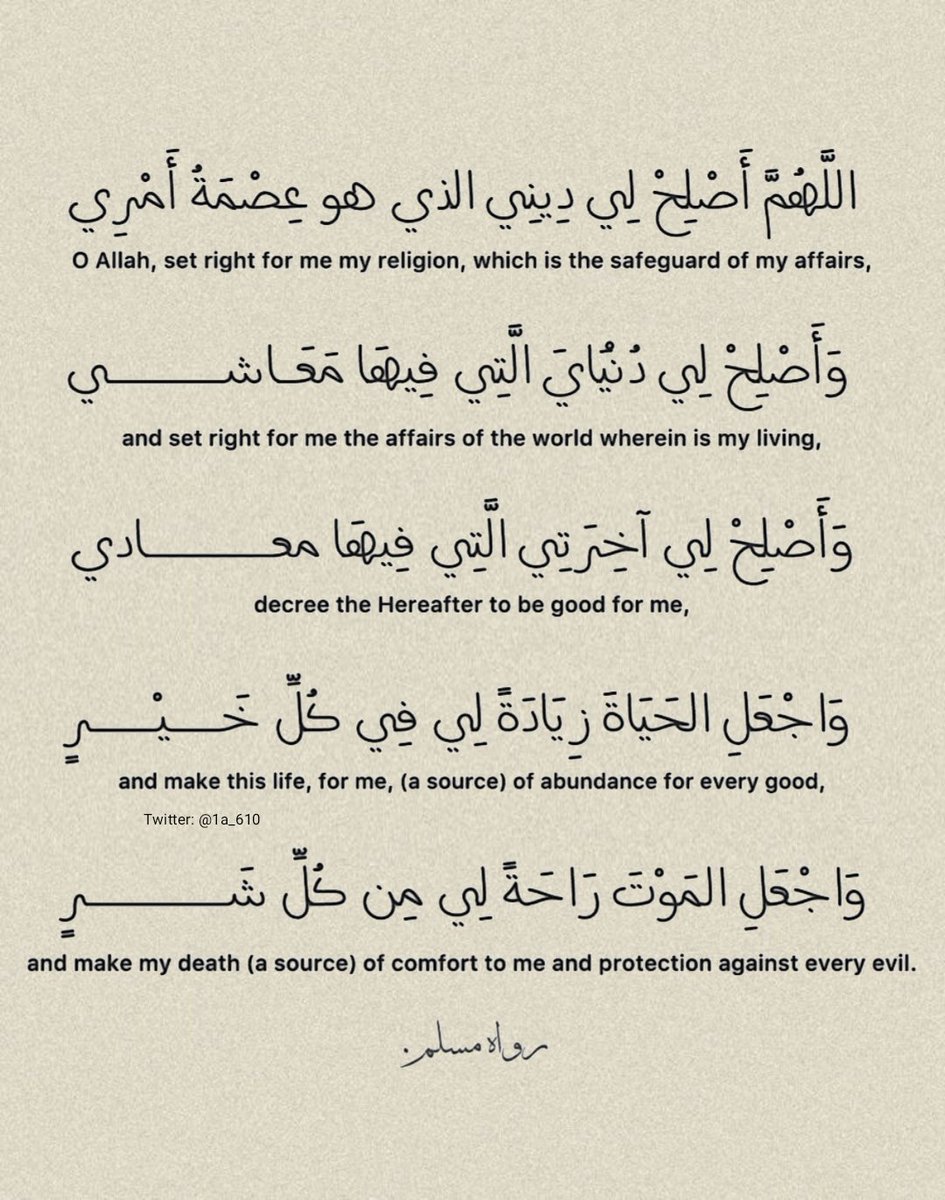 اللَّهُمَّ أَصْلِحْ لِي دِينِي الذي هو عِصْمَةُ أَمْرِي
O Allah, set right for me my religion, which is the safeguard of my affairs,
وَأَصْلِحْ لِي دُنْيُايَ الَّتِي فِيهَا مَعَاشـــــــي
and set right for me the affairs of the world wherein is my living,
وَأَصْلِحْ لِي آخِرَتِي الَّتِي فِيهَا معـــــــادي
decree the Hereafter to be good for me,
وَاجْعَلِ الحَيَاةَ زِيَادَةً لِي فِي كُلِّ خَـــيْـــرٍ
and make this life, for me, (a source) of abundance for every good,
Twitter: @1a_610
وَاجْعَلِ المَوْتَ رَاحَةً لِي مِن كُلِّ شَـــــــرٍ
and make my death (a source) of comfort to me and protection against every evil.
رواه مسلم.